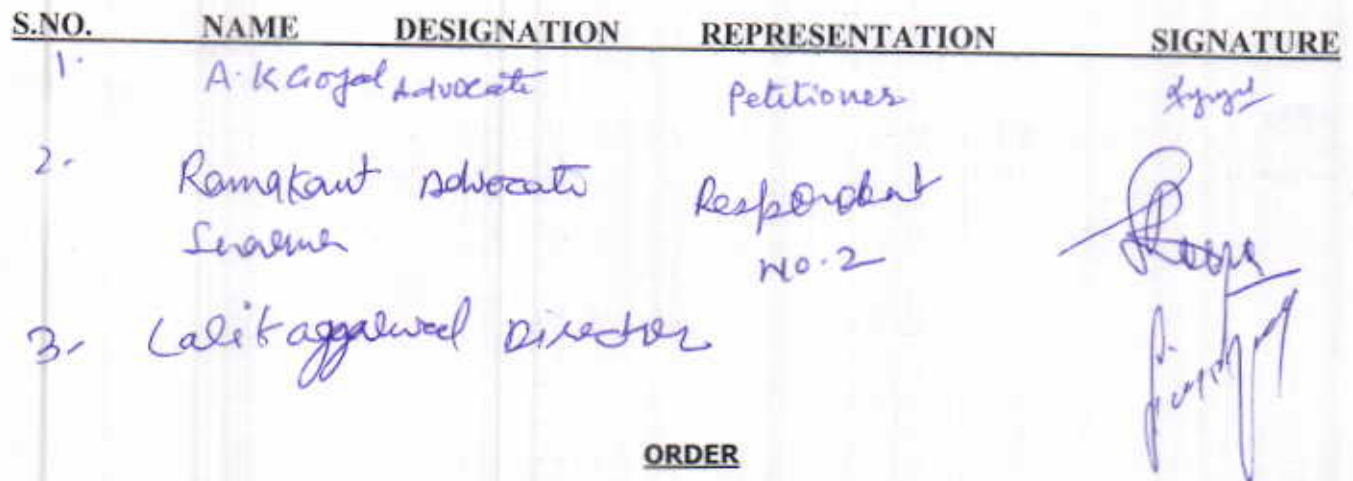 S.NO. NAME DESIGNATION REPRESENTATION SIGNATURE
1. A.K Goyal Advocate Petitioner
2. Ramakant Advocate Respondent
Sharma No.2
3. Lalit aggarwal Director
ORDER